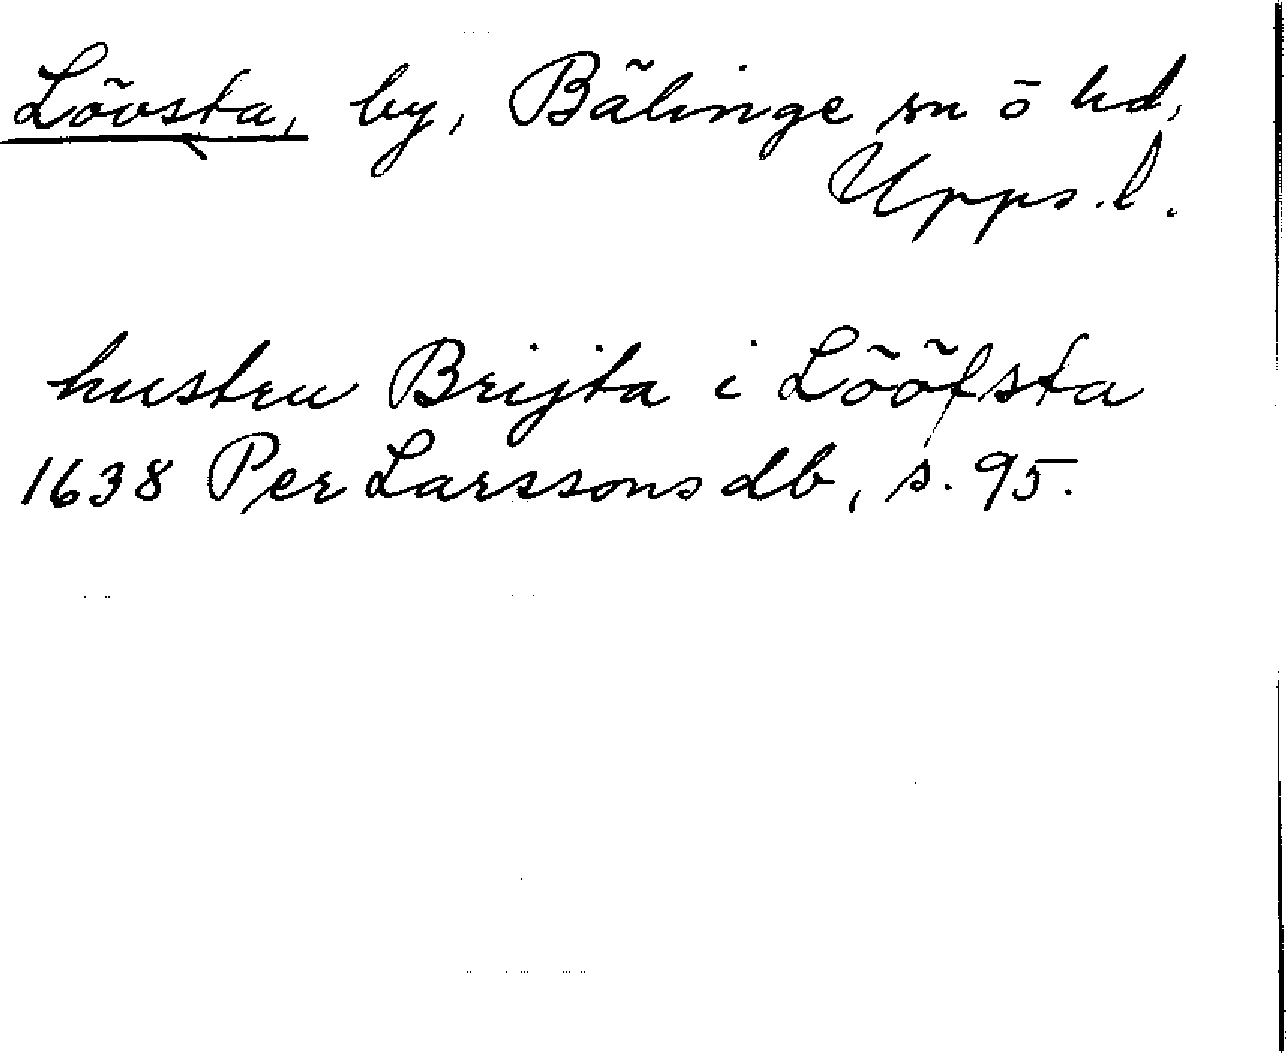 Lövsta, by, Bälinge sn o hd,
Upps. l.
hustru Brijta i Lööfsta
1638 Per Larssons db, s. 95.